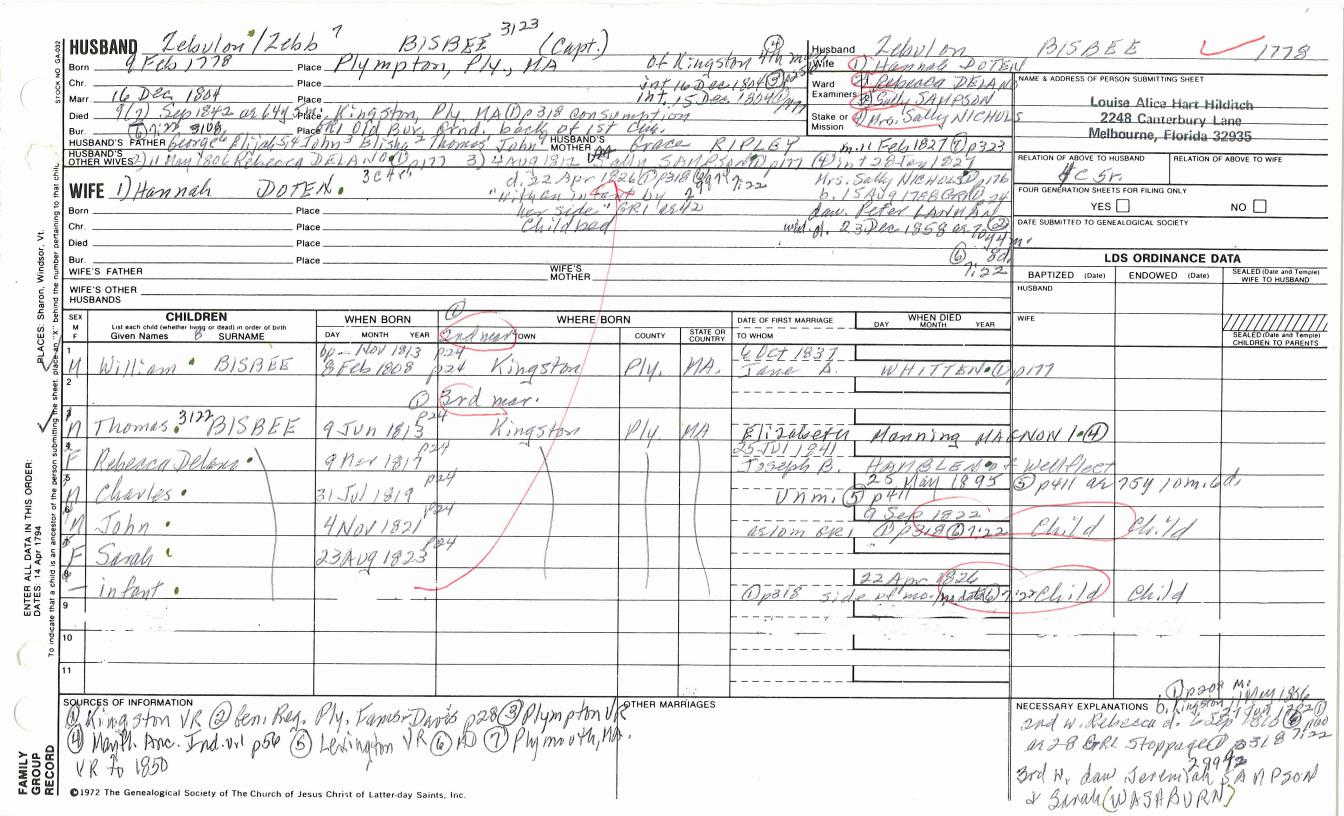 HUSBAND Zebulon/Zebb 7 BISBEE 3123 (Capt.)
Born 9 Feb 1778 Place Plympton, Ply., MA of Kingston
Chr. Place int 16 Dec 1804
Marr 16 Dec 1804 Place int. 15 Dec 1804
Died Sep 1842 ae 64y 5m Place Kingston Ply MA ① p318 consumption
Bur. Place GR1 Old Bur. Grnd. back of 1st Cng.
HUSBAND'S FATHER George Elijah John Elisha Thomas John HUSBAND'S MOTHER Grace RIPLEY m. 11 Feb 1827 ⑦ p323
HUSBAND'S OTHER WIVES 2) 11 May 1806 Rebecca DELANO ① p177 3) 4 Aug 1812 Sally SAMPSON p177 (4) int 28 Jan 1827
Husband Zebulon BISBEE 1778
Wife ① Hannah DOTEN
2 Rebecca DELANO
3 Sally SAMPSON
4 Mrs. Sally NICHOLS
Ward
Examiners
Stake or Mission
NAME & ADDRESS OF PERSON SUBMITTING SHEET
Louise Alice Hart Hilditch
2248 Canterbury Lane
Melbourne, Florida 32935
RELATION OF ABOVE TO HUSBAND RELATION OF ABOVE TO WIFE
FOUR GENERATION SHEETS FOR FILING ONLY
YES NO
DATE SUBMITTED TO GENEALOGICAL SOCIETY
WIFE 1) Hannah DOTEN
3 ch
d. 22 Apr 1826 ① p318
her side" GR1 ae 42
Childbed
Mrs. Sally NICHOLS p176
b. 15 Aug 1788
dau. Peter LANMAN
wid. d. 23 Dec 1858 ae 70
⑥ 7:22
Born Place
Chr. Place
Died Place
Bur. Place
WIFE'S FATHER WIFE'S MOTHER
WIFE'S OTHER HUSBANDS
LDS ORDINANCE DATA
BAPTIZED (Date) ENDOWED (Date) SEALED (Date and Temple) WIFE TO HUSBAND
HUSBAND
WIFE
SEALED (Date and Temple) CHILDREN TO PARENTS
SEX M F CHILDREN List each child (whether living or dead) in order of birth Given Names SURNAME
WHEN BORN DAY MONTH YEAR
WHERE BORN TOWN COUNTY STATE OR COUNTRY
DATE OF FIRST MARRIAGE TO WHOM
WHEN DIED DAY MONTH YEAR
① 2nd mar.
1 M William BISBEE bp. Nov 1813 p24 8 Feb 1808 p24 Kingston Ply. MA. 6 Oct 1837 Jane A. WHITTEN ① p177
2
① 3rd mar.
3 M Thomas 3122 BISBEE 9 Jun 1813 p24 Kingston Ply. MA Elizabeth Manning MAGNON ④
4 F Rebecca Delano 9 Mar 1817 p24 25 Jul 1841 Joseph B. HAMBLEN of Wellfleet
5 M Charles 31 Jul 1819 p24 Unm. ⑤ p411 25 May 1895 ⑤ p411 ae 75y 10m. 6d.
6 M John 4 Nov 1821 p24 9 Sep 1822 ae 10m GR1 ① p318 ⑥ 7:22 Child Child
F Sarah 23 Aug 1823 p24
8 - infant 22 Apr 1826 ① p318 side of mo. ⑥ 7:22 Child Child
9
10
11
SOURCES OF INFORMATION
① Kingston VR ② Gen. Reg. Ply. Fams - Davis p28 ③ Plympton VR
④ Mayfl. Anc. Ind. vol p56 ⑤ Lexington VR ⑥ ⑦ Plymouth, MA.
VR to 1850
OTHER MARRIAGES
NECESSARY EXPLANATIONS
2nd w. Rebecca d. 6 Sep 1810
ae 28 GR1 Stoppage ① p318 7:22
3rd w. dau Jeremiah SAMPSON
& Sarah (WASHBURN)
ENTER ALL DATA IN THIS ORDER:
DATES: 14 Apr 1794 PLACES: Sharon, Windsor, Vt.
To indicate that a child is an ancestor of the person submitting the sheet, place an "X" behind the number pertaining to that child.
STOCK NO. GA-002
FAMILY GROUP RECORD
©1972 The Genealogical Society of The Church of Jesus Christ of Latter-day Saints, Inc.